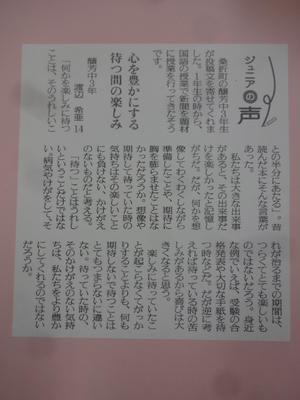 ジュニアの声
桑折町の醸芳中3年生
が投稿文を寄せてくれま
した。1年生の時から、
国語の授業で新聞を題材
に授業を行ってきたそう
です。
心を豊かにする
待つ間の楽しみ
醸芳中3年
渡辺 希亜 14
「何かを楽しみに待つ
ことは、そのうれしいこ
との半分にあたる」。昔
読んだ本にそんな言葉が
あった。
私たちは大きな出来事
があると、その出来事だ
けを楽しかったと記憶し
がちだ。だが、何かを想
像してわくわくしながら
準備したことや、期待に
胸を膨らませたことなな
かっただろうか。想像や
期待して待っていた時の
気持ちはその楽しいこと
にも負けない、かけがえ
のないものだと考える。
「待つ」ことは楽しみ
ということだけではな
い。病気やけがをして、そ
れが治るまでの期間は、
つらくてとても楽しいも
のではないだろう。身近
な例でいえば、受験の合
格発表や大切な手紙を待
つ時などだ。だが逆に考
えれば待っている時の苦
しみがあるから喜びは大
きくなると思う。
楽しみに待っていたこ
とが起こらなくてがっか
りすることよりも、何も
期待しないで待つことは
とてもつまらないに違い
ない。待っていた時の、
そのかけがえのない気持
ちは、私たちをより豊か
にしてくれるのではない
だろうか。